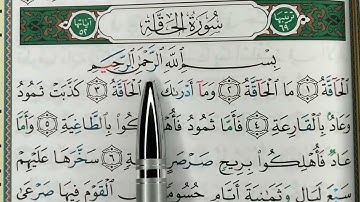 ترتيبها ٦٩ سُورَةُ الْحَاقَّةِ آياتها ٥٢
بِسْمِ اللَّهِ الرَّحْمَٰنِ الرَّحِيمِ
الْحَاقَّةُ ۝١ مَا الْحَاقَّةُ ۝٢ وَمَا أَدْرَىٰكَ الْحَاقَّةُ ۝٣ كَذَّبَتْ ثَمُودُ
وَعَادٌ بِالْقَارِعَةِ ۝٤ فَأَمَّا ثَمُودُ فَأُهْلِكُوا بِالطَّاغِيَةِ ۝٥ وَأَمَّا
عَادٌ فَأُهْلِكُوا بِرِيحٍ صَرْصَرٍ ۝٦ سَخَّرَهَا عَلَيْهِمْ
سَبْعَ لَيَالٍ وَثَمَٰنِيَةَ أَيَّامٍ حُسُومًا الْقَوْمَ فِيهَا صَرْعَىٰ